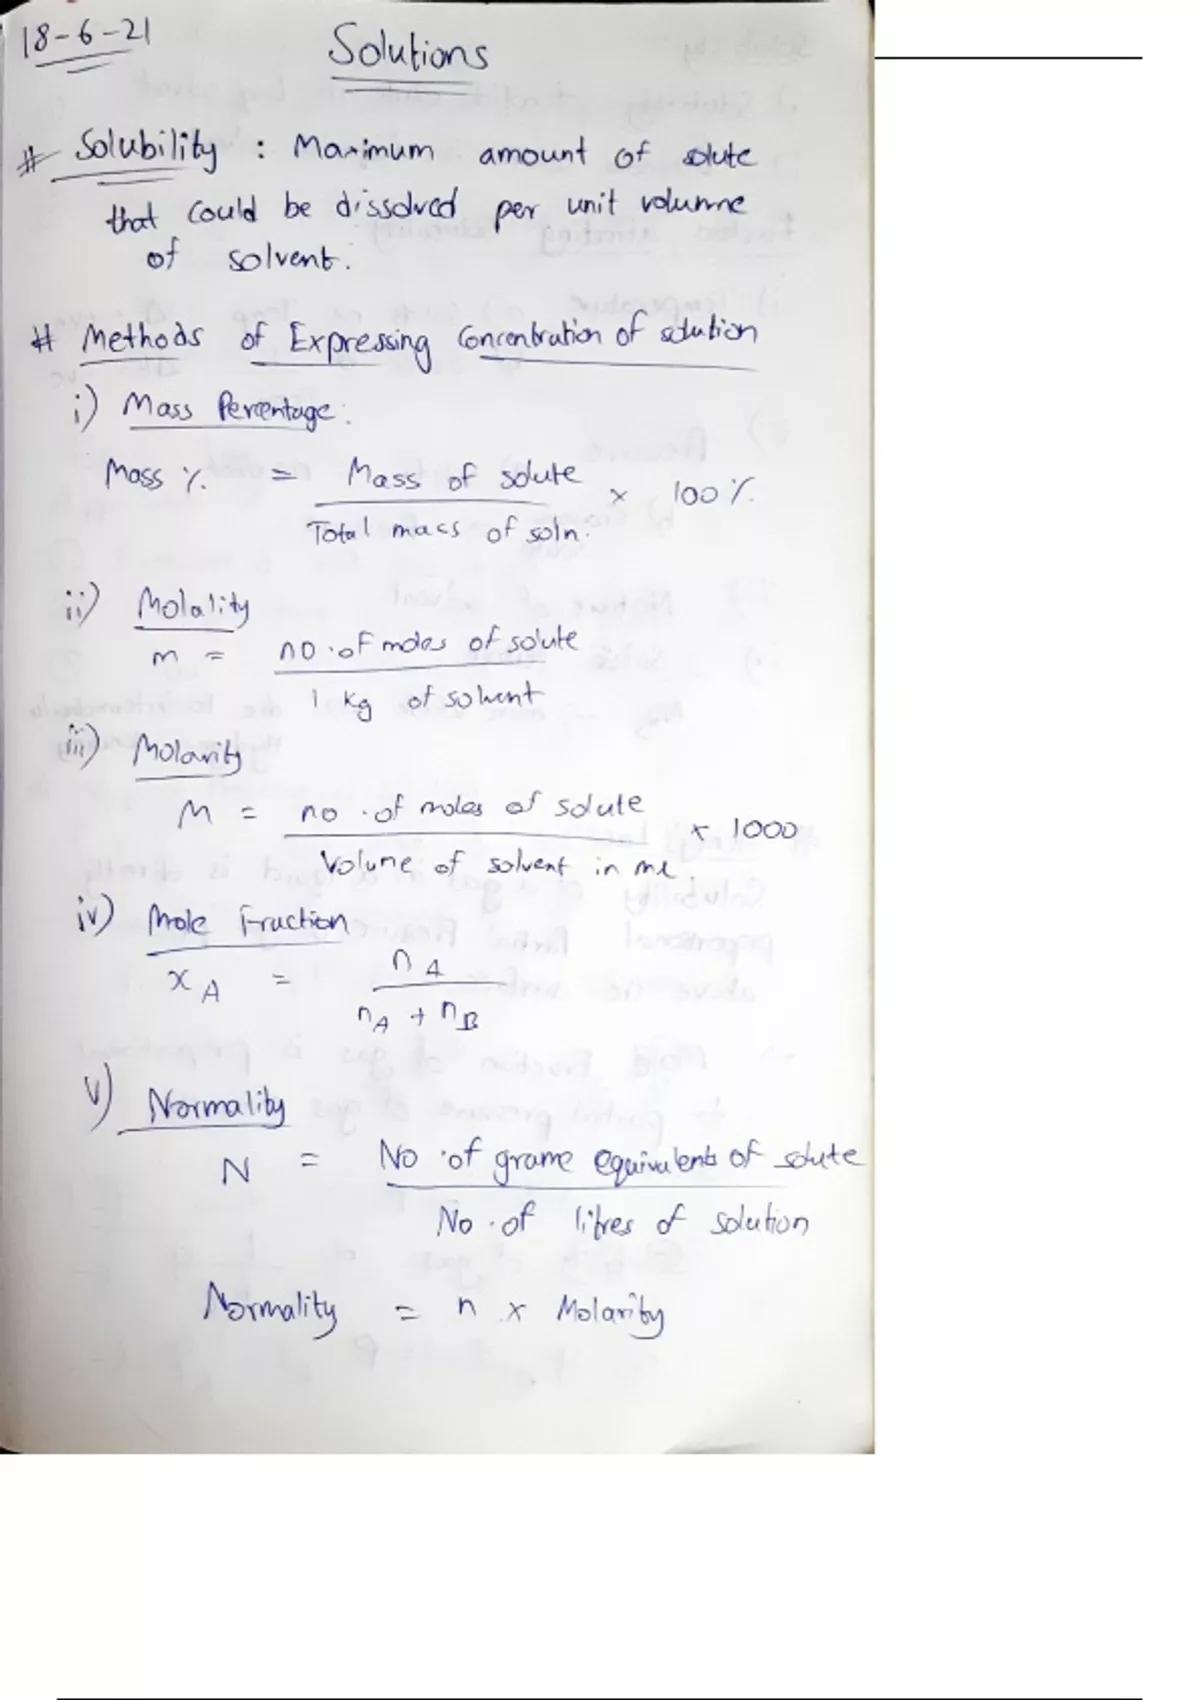 18-6-21
Solutions
# Solubility : Maximum amount of solute
that could be dissolved per unit volumne
of solvent.
# Methods of Expressing Concentration of solution
i) Mass Percentage:
Mass % = Mass of solute × 100 %
Total mass of soln.
ii) Molality
m = no. of moles of solute
1 kg of solvent
iii) Molarity
M = no. of moles of solute × 1000
Volume of solvent in ml.
iv) Mole Fraction
x A = n A
n A + n B
v) Normality
N = No. of grame equivalents of solute
No. of litres of solution
Normality = n × Molarity